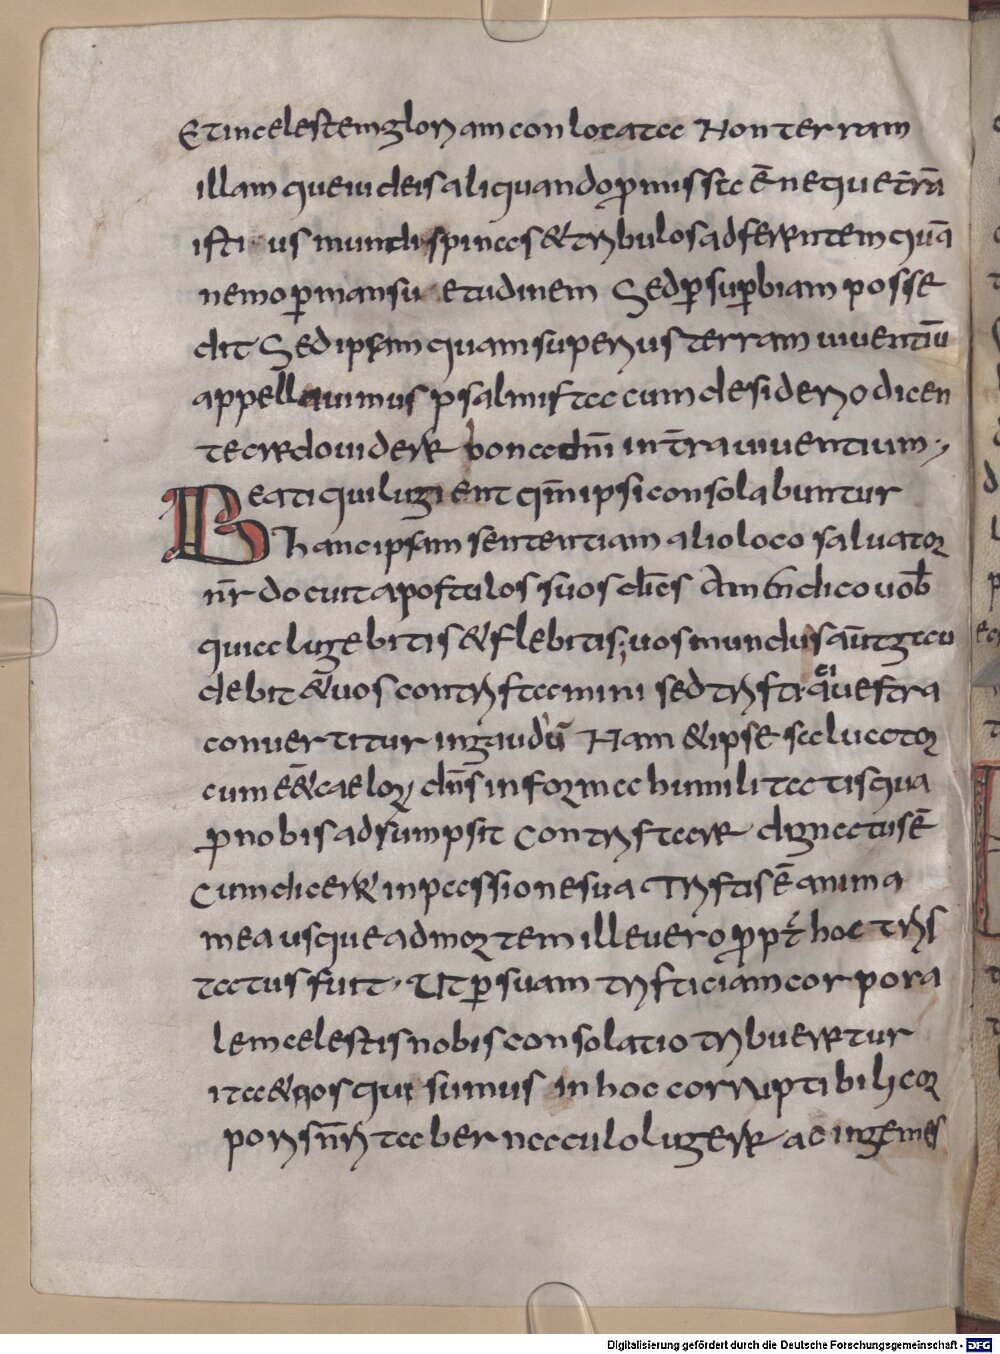 Et in celestem gloriam conlocata Non terram
illam que iudeis aliquando p̲missa ē neque t̄rā
isti us mundi spinas & tribulos adferentem quā
nemo p̲ mansu etudinem Sed p̲ sup̲biam posse
dit Sed ipsam quam superius terram uiuentiū
appellauimus psalmista cum desiderio dicen
te credo uidere bona dn̄i in t̄ra uiuentium
Beati qui lugient qm̄ ipsi consolabuntur
hanc ipsam sententiam alio loco saluator
nr̄ docuit apostulos suos dic̄s Am̄ dico uob̄
quia lugebitis & flebitis; uos mundus aūt gau
debit & uos contristamini sed tristi q ei uestra
conuertitur in gaudiū Nam & ipse saluator
cum ēēt caelor dn̄s in forma humilitatis qua
p̲ nobis adsumpsit Contristare dignatus ē
Cum dicer& in passione sua Tristis ē anima
mea usque ad mortem ille uero p̲pt̄ hoc tris
tatus fuit · Ut p̲ suam tristiciam corpora
lem celestis nobis consolatio tribueretur
ita & nos qui sumus in hoc corruptibili cor
poris nr̄i tabernaculo lugere ac ingemes
Digitalisierung gefördert durch die Deutsche Forschungsgemeinschaft - DFG